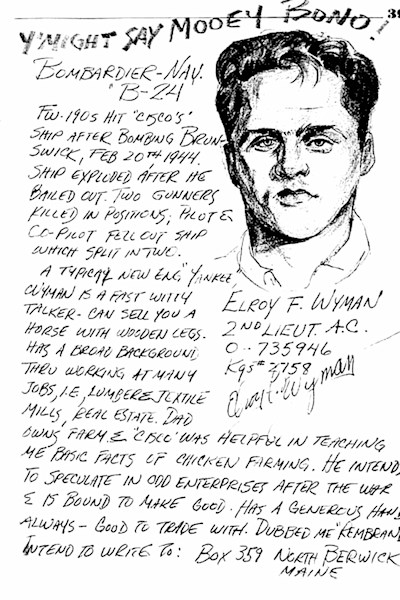 39
Y'MIGHT SAY MOOEY BONO!
BOMBARDIER-NAV.
B-24
FW-190S HIT "CISCO'S"
SHIP AFTER BOMBING BRUN-
SWICK, FEB 20TH 1944.
SHIP EXPLODED AFTER HE
BAILED OUT. TWO GUNNERS
KILLED IN POSITIONS; PILOT &
CO-PILOT FELL OUT SHIP
WHICH SPLIT IN TWO.
A TYPICAL NEW ENG "YANKEE,"
WYMAN IS A FAST WITTY
TALKER- CAN SELL YOU A
HORSE WITH WOODEN LEGS.
HAS A BROAD BACKGROUND
THRU WORKING AT MANY
JOBS, I.E, LUMBER & TEXTILE
MILLS, REAL ESTATE. DAD
OWNS FARM & "CISCO" WAS HELPFUL IN TEACHING
ME BASIC FACTS OF CHICKEN FARMING. HE INTENDS
TO SPECULATE IN ODD ENTERPRISES AFTER THE WAR
& IS BOUND TO MAKE GOOD. HAS A GENEROUS HAND
ALWAYS - GOOD TO TRADE WITH. DUBBED ME "KEMBRAN
INTEND TO WRITE TO: BOX 359 NORTH BERWICK
MAINE
ELROY F. WYMAN
2ND LIEUT. A.C.
O-735946
Kgs# 2758
Elroy F. Wyman